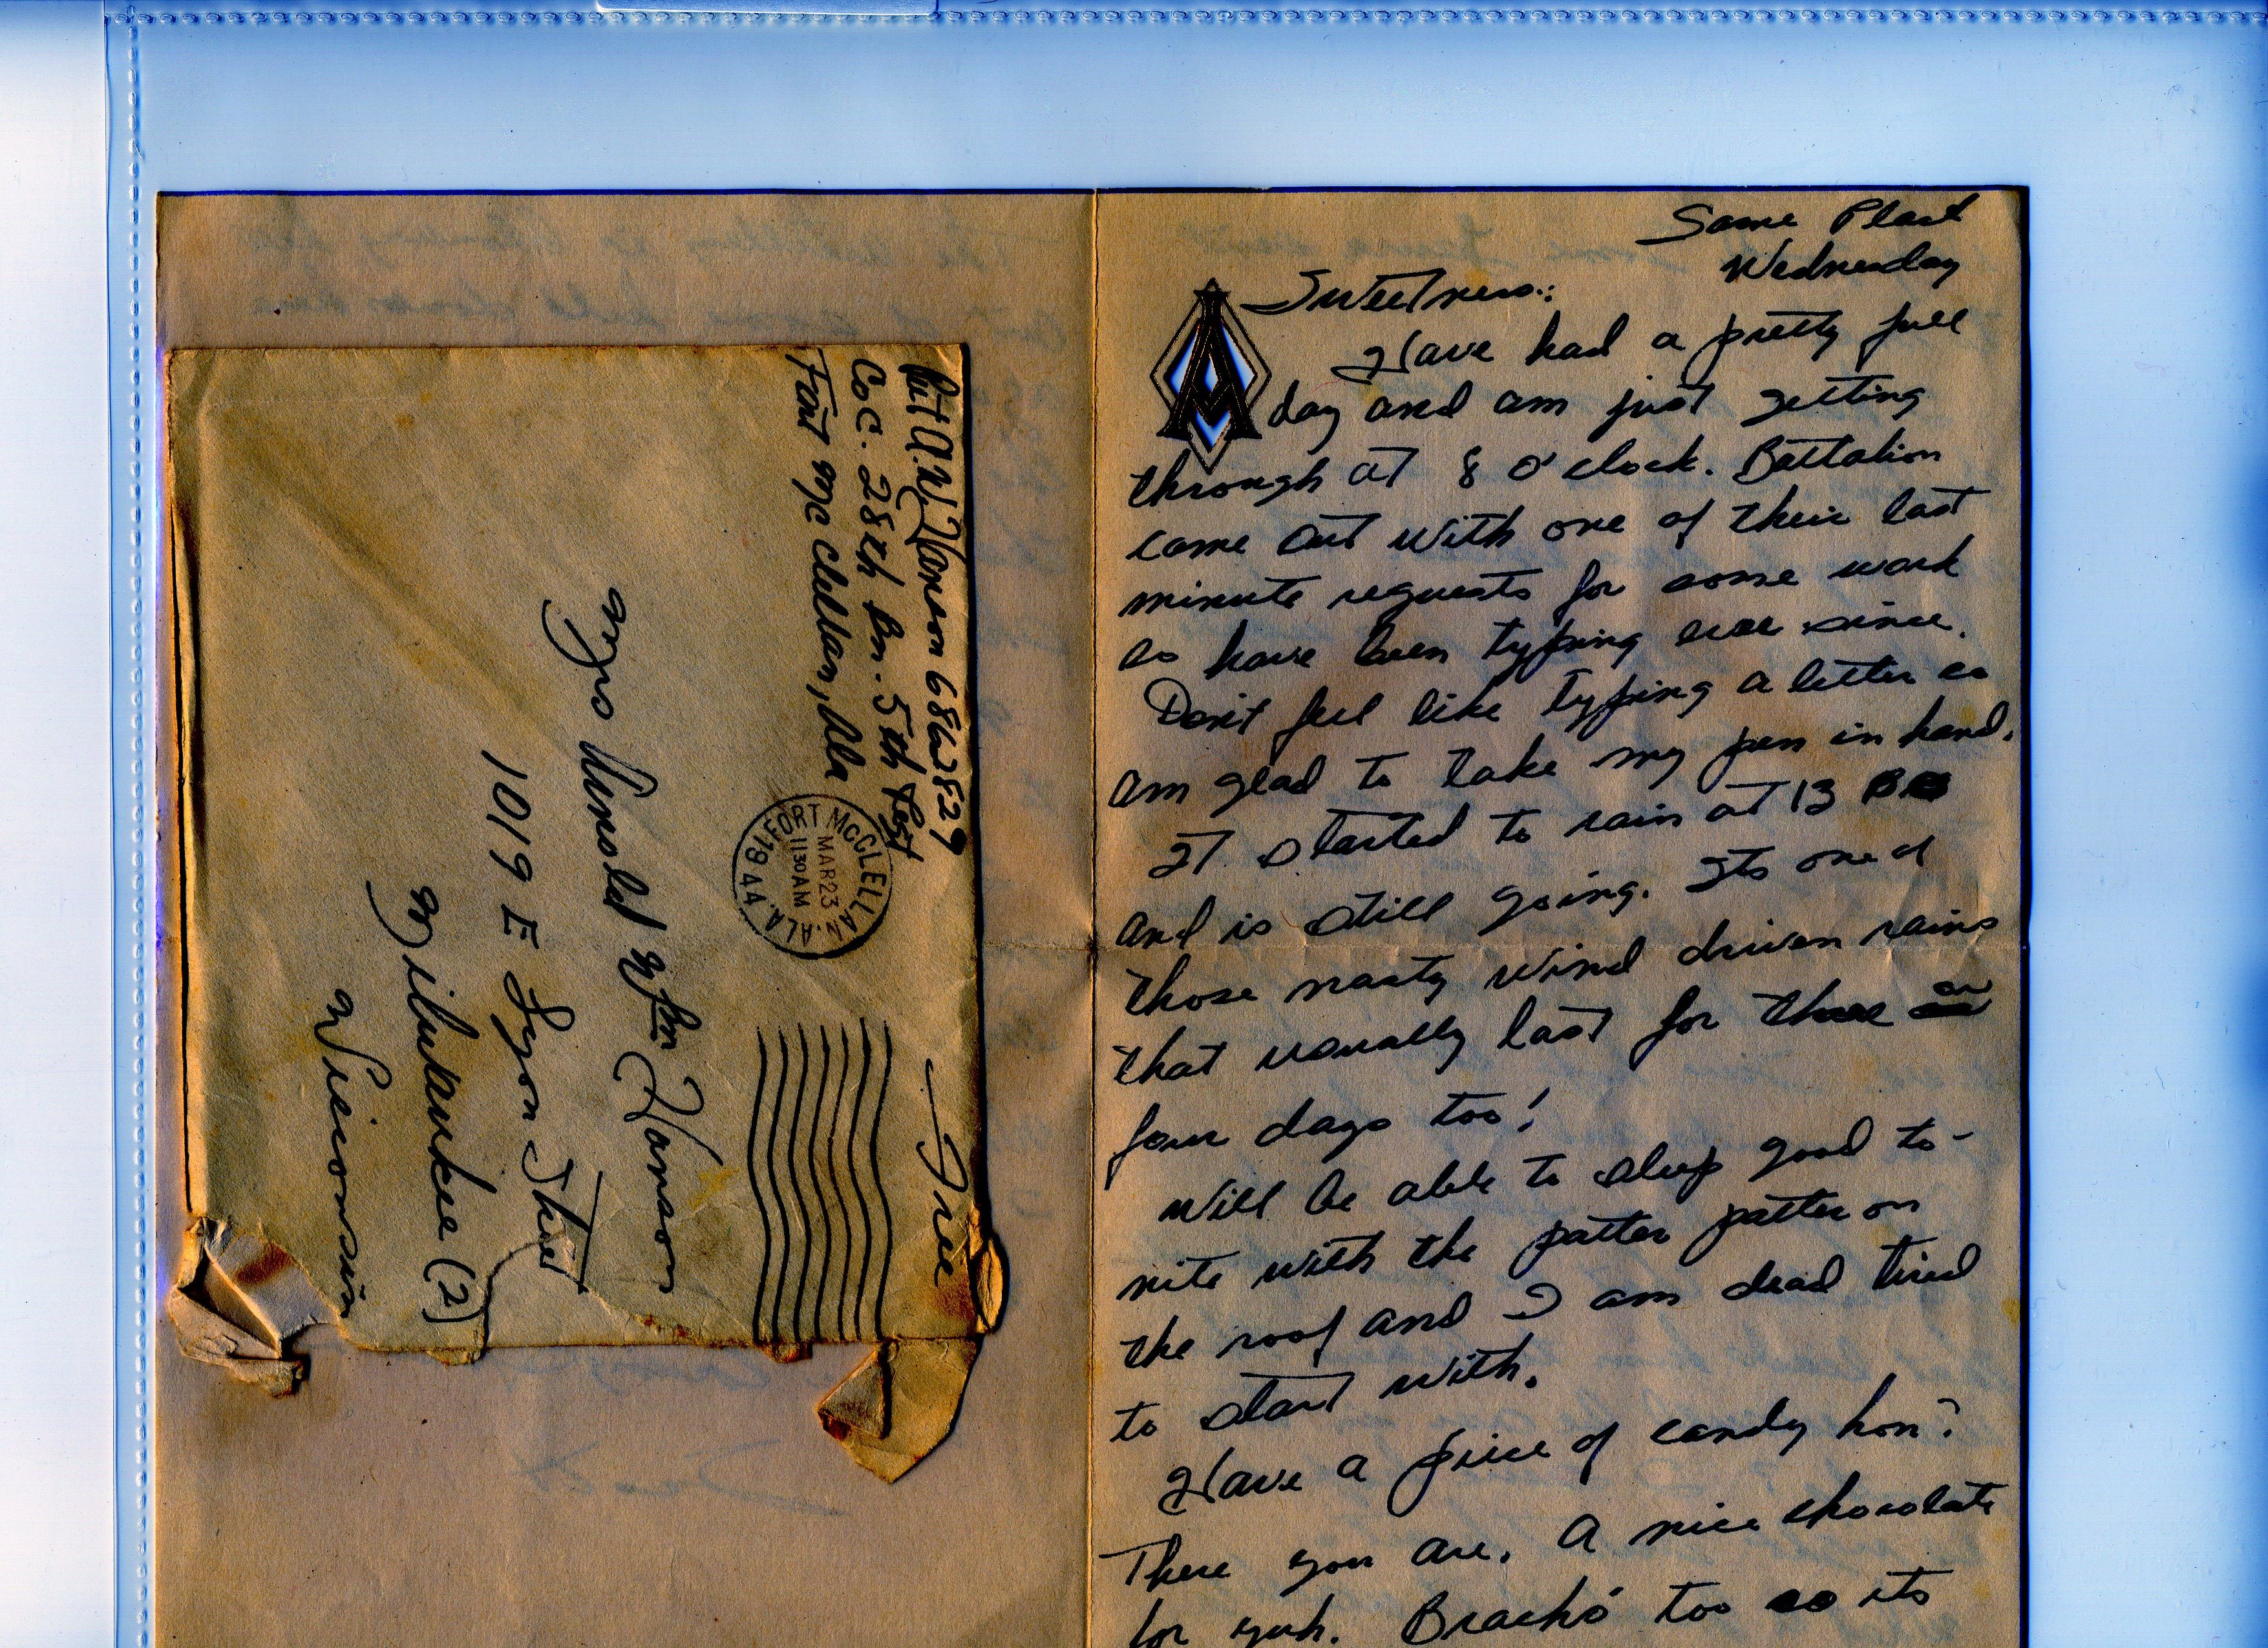 Pvt A.W. Hanson 6862829
Co C. 28th Bn. 5th Regt
Fort McClellan, Ala
FORT MCCLELLAN. ALA.
MAR 23
11 30 AM
1944
Free
Mrs Arnold Wm Hanson
1019 E Lyon Street
Milwaukee (2)
Wisconsin
Same Place
Wednesday
A
Sweetness:
Have had a pretty full
day and am just getting
through at 8 O'clock. Battalion
came out with one of their last
minute requests for some work
so have been typing ever since.
Don't feel like typing a letter so
am glad to take my pen in hand.
It started to rain at 13
and is still going. Its one of
those nasty wind driven rains
that usually last for three or
four days too!
Will be able to sleep good to-
nite with the patter patter on
the roof and I am dead tired
to start with.
Have a piece of candy hon?
There you are. A nice chocolate
for yuh. Brach's too so its